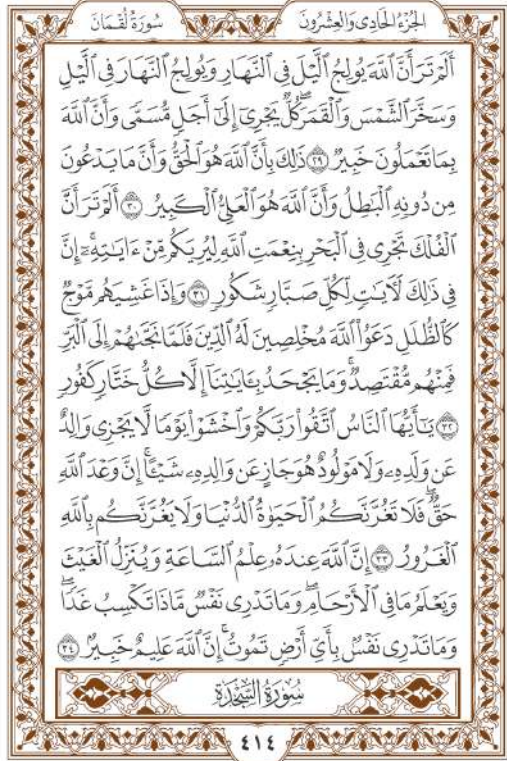 سُورَةُ لُقْمَانَ
الجُزْءُ الحَادِي وَالعِشْرُونَ
أَلَمْ تَرَ أَنَّ ٱللَّهَ يُولِجُ ٱلَّيْلَ فِي ٱلنَّهَارِ وَيُولِجُ ٱلنَّهَارَ فِي ٱلَّيْلِ
وَسَخَّرَ ٱلشَّمْسَ وَٱلْقَمَرَۖ كُلٌّ يَجْرِيٓ إِلَىٰٓ أَجَلٍ مُّسَمًّى وَأَنَّ ٱللَّهَ
بِمَا تَعْمَلُونَ خَبِيرٌ ٢٩ ذَٰلِكَ بِأَنَّ ٱللَّهَ هُوَ ٱلْحَقُّ وَأَنَّ مَا يَدْعُونَ
مِن دُونِهِ ٱلْبَٰطِلُ وَأَنَّ ٱللَّهَ هُوَ ٱلْعَلِيُّ ٱلْكَبِيرُ ٣٠ أَلَمْ تَرَ أَنَّ
ٱلْفُلْكَ تَجْرِي فِي ٱلْبَحْرِ بِنِعْمَتِ ٱللَّهِ لِيُرِيَكُم مِّنْ ءَايَٰتِهِۦٓۚ إِنَّ
فِي ذَٰلِكَ لَأٓيَٰتٍ لِّكُلِّ صَبَّارٍ شَكُورٍ ٣١ وَإِذَا غَشِيَهُم مَّوْجٌ
كَٱلظُّلَلِ دَعَوُاْ ٱللَّهَ مُخْلِصِينَ لَهُ ٱلدِّينَ فَلَمَّا نَجَّىٰهُمْ إِلَى ٱلْبَرِّ
فَمِنْهُم مُّقْتَصِدٌۚ وَمَا يَجْحَدُ بِـَٔايَٰتِنَآ إِلَّا كُلُّ خَتَّارٍ كَفُورٍ
٣٢ يَٰٓأَيُّهَا ٱلنَّاسُ ٱتَّقُواْ رَبَّكُمْ وَٱخْشَوْاْ يَوْمًا لَّا يَجْزِي وَالِدٌ
عَن وَلَدِهِۦ وَلَا مَوْلُودٌ هُوَ جَازٍ عَن وَالِدِهِۦ شَيْـًٔاۚ إِنَّ وَعْدَ ٱللَّهِ
حَقٌّۖ فَلَا تَغُرَّنَّكُمُ ٱلْحَيَوٰةُ ٱلدُّنْيَا وَلَا يَغُرَّنَّكُم بِٱللَّهِ
ٱلْغَرُورُ ٣٣ إِنَّ ٱللَّهَ عِندَهُۥ عِلْمُ ٱلسَّاعَةِ وَيُنَزِّلُ ٱلْغَيْثَ
وَيَعْلَمُ مَا فِي ٱلْأَرْحَامِۖ وَمَا تَدْرِي نَفْسٌ مَّاذَا تَكْسِبُ غَدًاۖ
وَمَا تَدْرِي نَفْسُۢ بِأَيِّ أَرْضٍ تَمُوتُۚ إِنَّ ٱللَّهَ عَلِيمٌ خَبِيرُۢ ٣٤
سُورَةُ السَّجْدَةِ
٤١٤